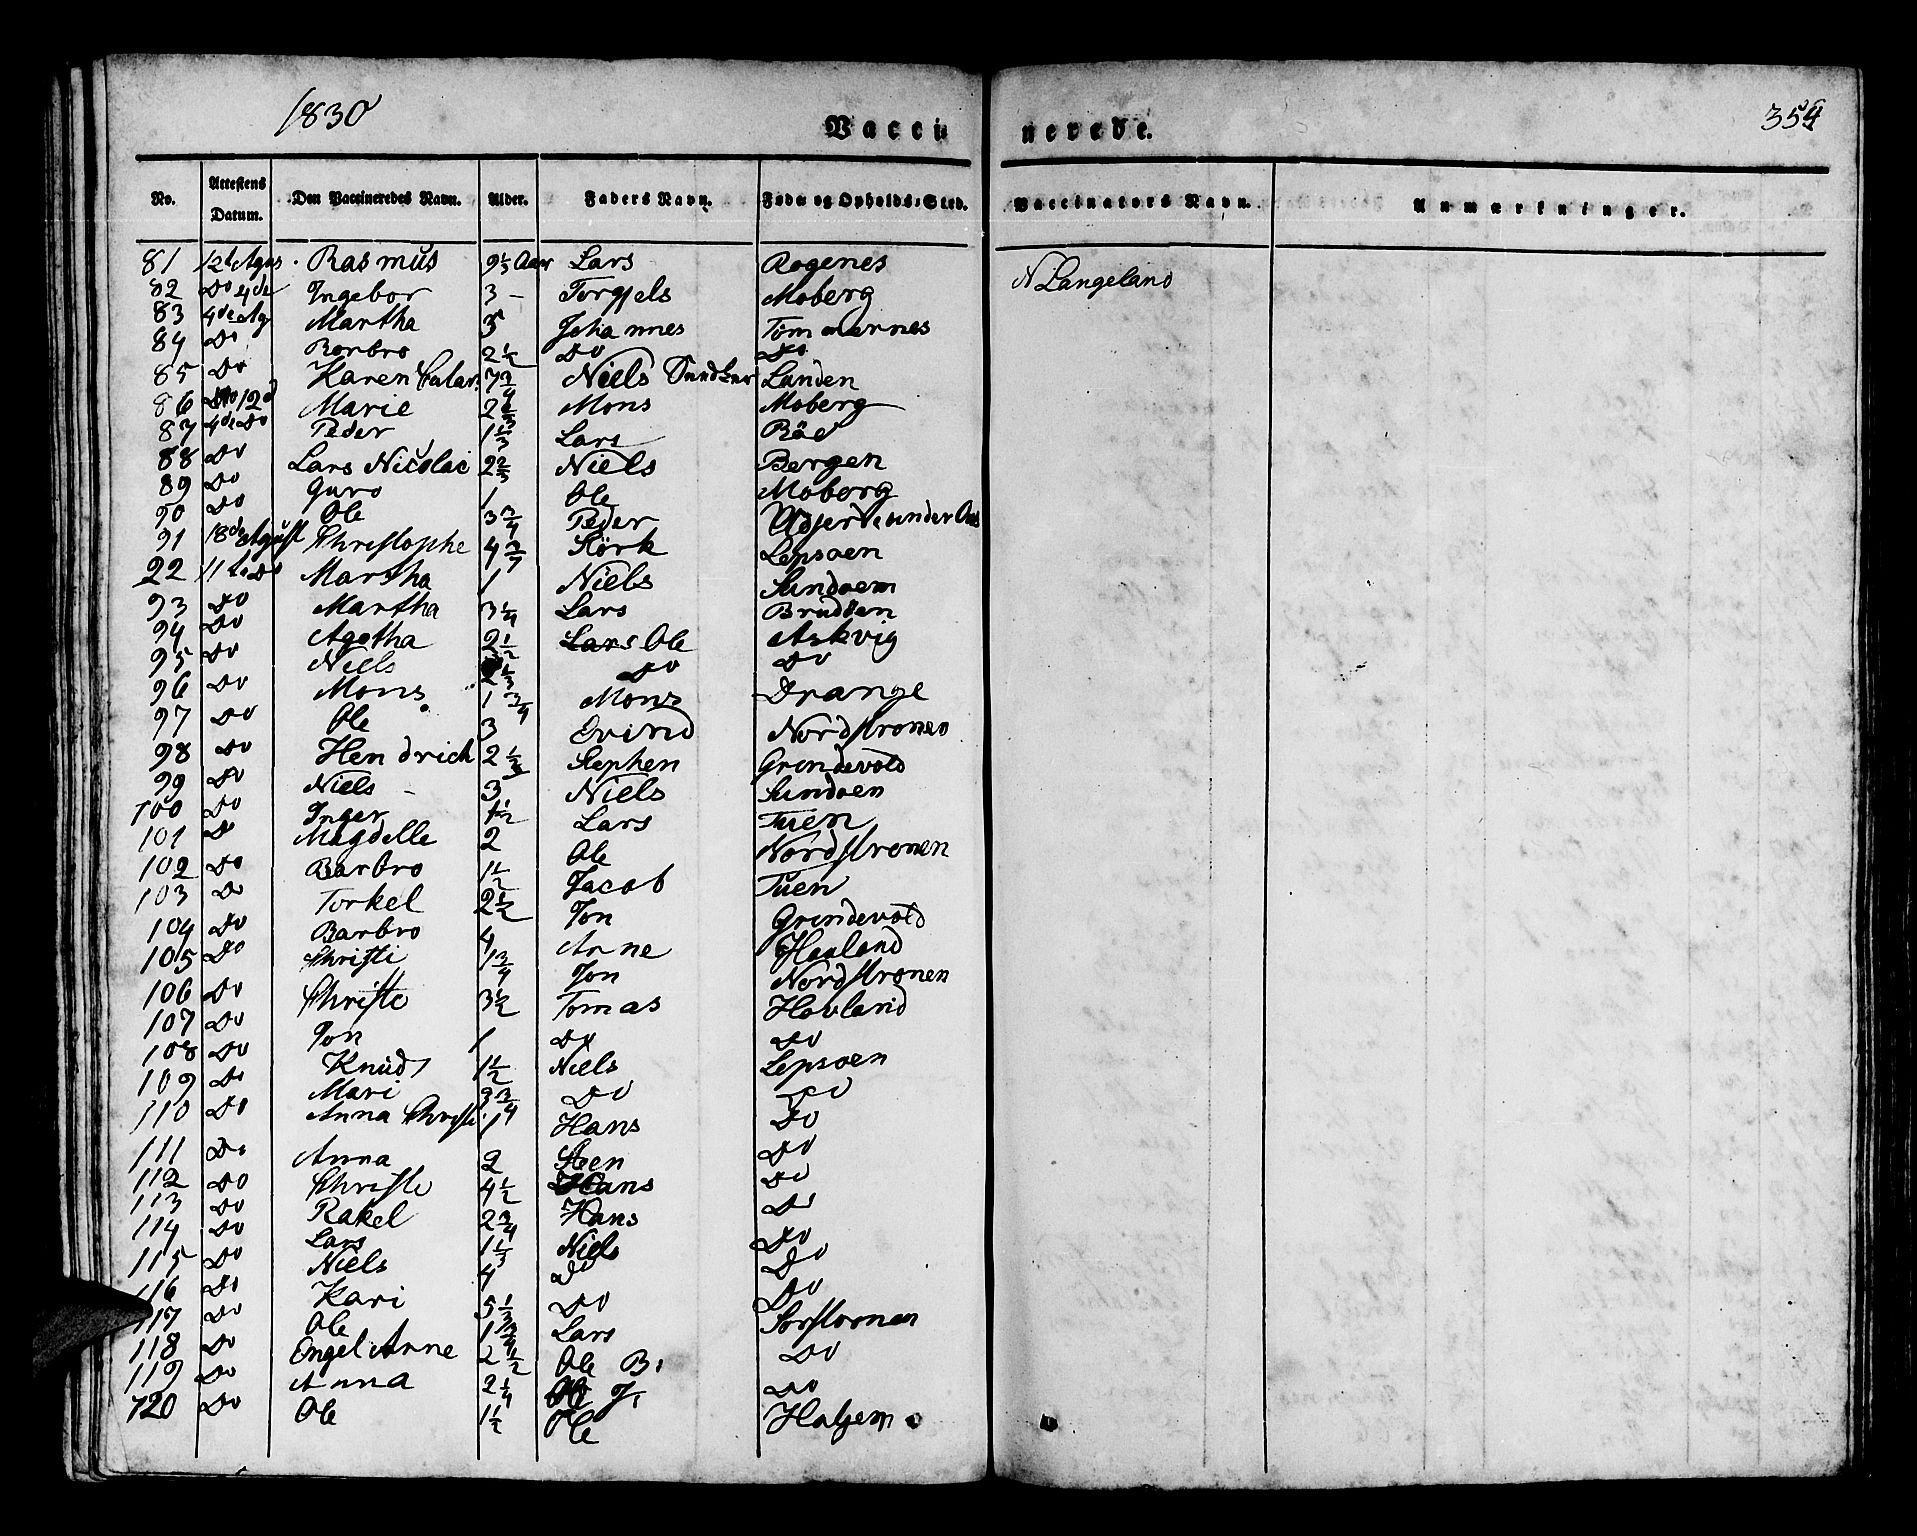 1830
Vaccinerede.
354
No. Attestens Datum. Den Vaccineredes Navn. Alder. Faders Navn. Føde og Opholds-Sted. Vaccinators Navn. Anmærkninger.
81 12t Agus Rasmus 9 1/3 Aar Lars Rogenes N Langeland
82 Do 4de Ingebor 3 - Torgjels Moberg
83 4de Ag Martha 5 Johannes Tømmernes
84 Do Borbro 2 1/2 Do Do
85 Do Karen 7 3/4 Niels Landen
86 Do 12d Marie Mons Moberg
87 4de Do Peder 1 1/3 Lars Röe
88 Do Lars Nicolai 2 2/3 Niels Bergen
89 Do Guro 1 Ole Moberg
90 Do Ole 3 3/4 Peder
91 18de Agust Christophe 4 3/4 Størk Lepsøen
22 11te Do Martha 1 Niels Sundøem
93 Do Martha 3 1/4 Lars Brudöen
94 Do Agotha 2 1/2 Lars Ole Askvig
95 Do Niels Do Do
96 Do Mons 1 3/4 Mons Drange
97 Do Ole 3 Evind Nordstronen
98 Do Hendrich 2 1/2 Stephen Grindevold
99 Do Niels - 3 Niels Sundoen
100 Do Inger 1 1/2 Lars Tuen
101 Do Magdelle 2 Ole Nordstronen
102 Do Barbro 1 1/2 Jacob Tuen
103 Do Torkel 2 1/2 Jon Grindevold
104 Do Barbro 4 Arne Haaland
105 Do Christi 1 3/4 Jon Nordstronen
106 Do Christe 3 1/2 Tomas Hovland
107 Do Jon 1 Do Do
108 Do Knud 1 1/2 Niels Lepsøen
109 Do Mari 3 3/4 Do Do
110 Do Anna Christi 1 Hans Do
111 Do Anna 2 Steen Do
112 Do Christe 4 1/2 Hans Do
113 Do Rakel 2 3/4 Hans Do
114 Do Lars 1 1/3 Niels Do
115 Do Niels 4 Do Do
116 Do Kari 5 1/3 Do Do
117 Do Ole 1 3/4 Lars Sorstornen
118 Do Engel Anne 2 1/2 Ole B. Do
119 Do Anna 2 1/4 Ole J. Do
120 Do Ole 1 1/2 Ole Haljem